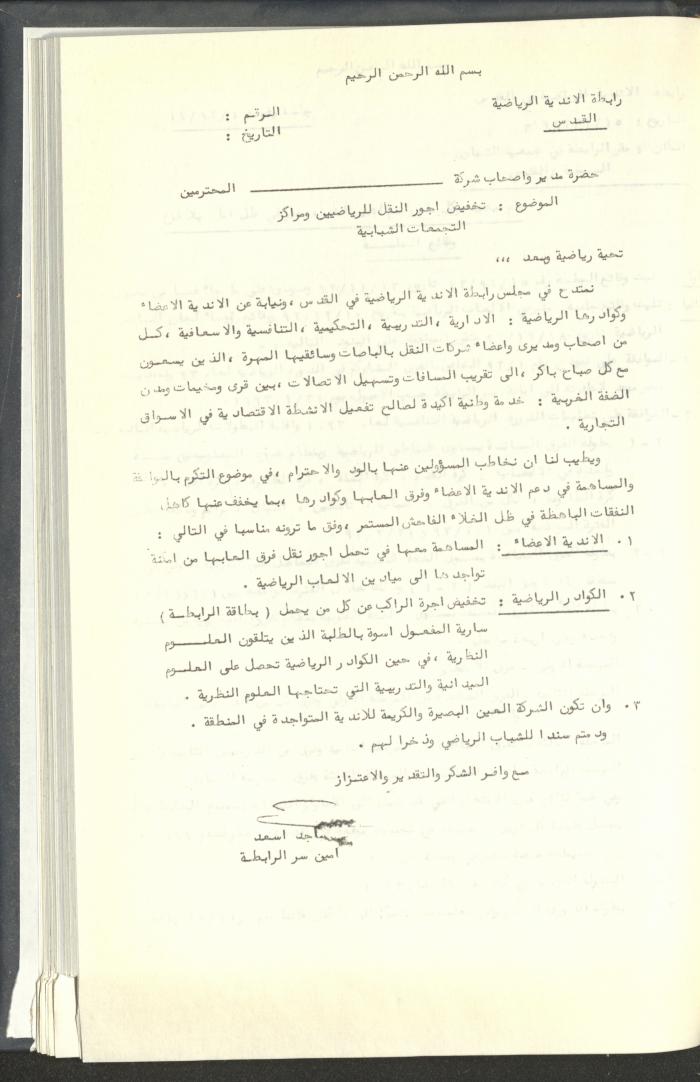 بسم الله الرحمن الرحيم
رابطة الاندية الرياضية
القدس
الرقم :
التاريخ :
حضرة مدير واصحاب شركة ــــــــــــــــــــ المحترمين
الموضوع : تخفيض اجور النقل للرياضيين ومراكز
التجمعات الشبابية
تحية رياضية وبعد ،،،
نمتدح في مجلس رابطة الاندية الرياضية في القدس ،ونيابة عن الاندية الاعضاء
وكوادرها الرياضية : الادارية ،التدريبية ،التحكيمية ،التنافسية والاسعافية ،كل
من اصحاب ومديرى واعضاء شركات النقل بالباصات وسائقيها المهرة ،الذين يسعون
مع كل صباح باكر ،الى تقريب المسافات وتسهيل الاتصالات ،بين قرى ومخيمات ومدن
الضفة الغربية : خدمة وطنية اكيدة لصالح تفعيل الانشطة الاقتصادية في الاسواق
التجارية .
ويطيب لنا ان نخاطب المسؤولين عنها بالود والاحترام ،في موضوع التكرم بالموافقة
والمساهمة في دعم الاندية الاعضاء وفرق العابها وكوادرها ،بما يخفف عنها كاهل
النفقات الباهظة في ظل الغلاء الفاحش المستمر ،وفق ما ترونه مناسبا في التالي :
١ . الاندية الاعضاء : المساهمة معها في تحمل اجور نقل فرق العابها من امكنة
تواجدها الى ميادين الالعاب الرياضية .
٢ . الكوادر الرياضية : تخفيض اجرة الراكب عن كل من يحمل ( بطاقة الرابطة )
سارية المفعول اسوة بالطلبة الذين يتلقون العلوم
النظرية ،في حين الكوادر الرياضية تحصل على العلوم
الميدانية والتدريبية التي تحتاجها العلوم النظرية .
٣ . وان تكون الشركة العين البصيرة والكريمة للاندية المتواجدة في المنطقة .
ودمتم سندا للشباب الرياضي وذخرا لهم .
مع وافر الشكر والتقدير والاعتزاز
ماجد اسعد
امين سر الرابطة